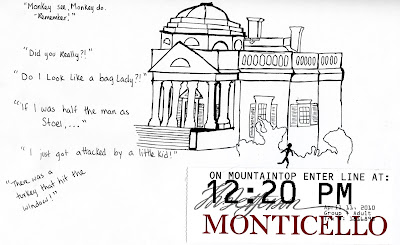 "Monkey see, Monkey do.
"Remember!"
"Did you Really?!"
"Do I Look like a bag Lady?!"
"If I was half the man as
Stoel,..."
"I just got attacked by a little kid!"
"There was a
turkey that hit the
window!"
ON MOUNTAINTOP ENTER LINE AT:
12:20 PM
April 11, 2010
Group Adult
MONTICELLO